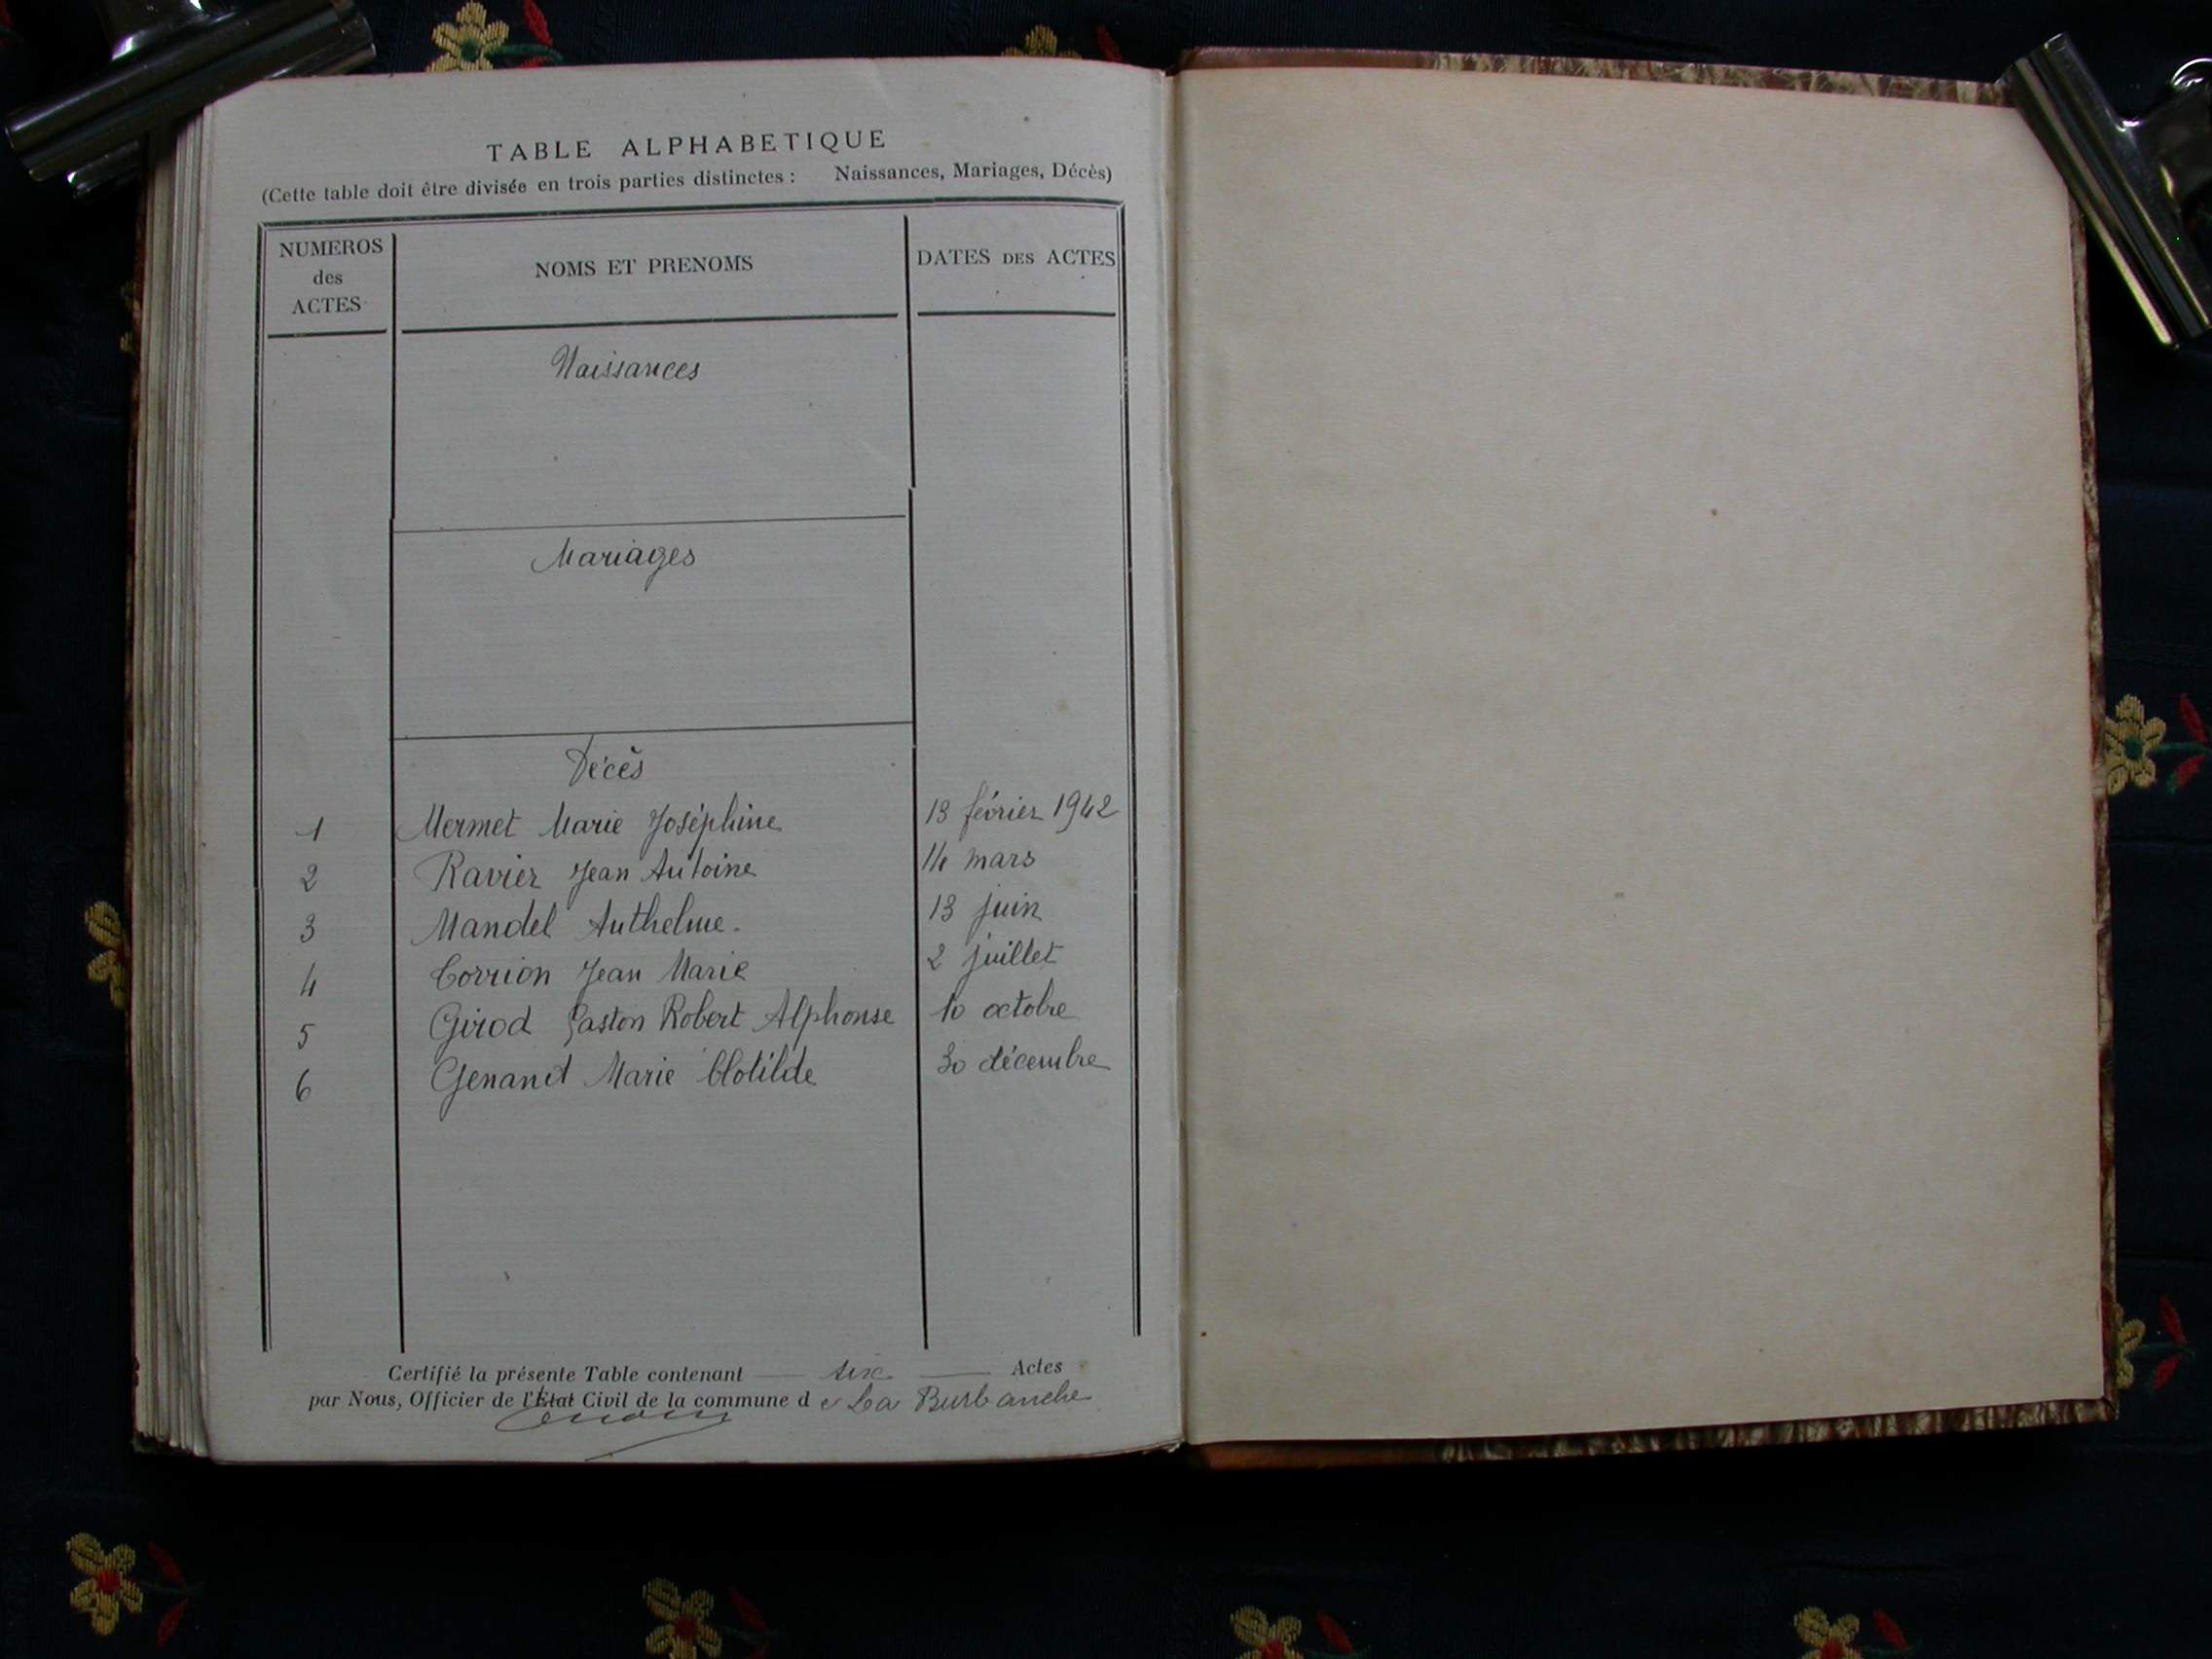 TABLE ALPHABETIQUE
(Cette table doit être divisée en trois parties distinctes : Naissances, Mariages, Décès)
NUMEROS des ACTES NOMS ET PRENOMS DATES DES ACTES
Naissances
Mariages
Décès
1 Mermet Marie Joséphine 13 février 1942
2 Ravier Jean Antoine 14 mars
3 Mandel Anthelme. 13 juin
4 Corrion Jean Marie 2 juillet
5 Girod Gaston Robert Alphonse 10 octobre
6 Marie Clotilde 30 décembre
Certifié la présente Table contenant six Actes
par Nous, Officier de l'État Civil de la commune de La Burbanche